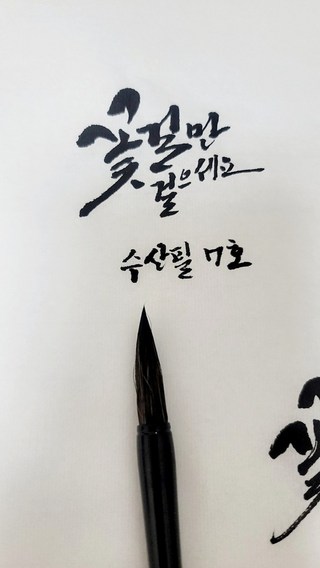 꽃길만
걸으세요
수산필 7호